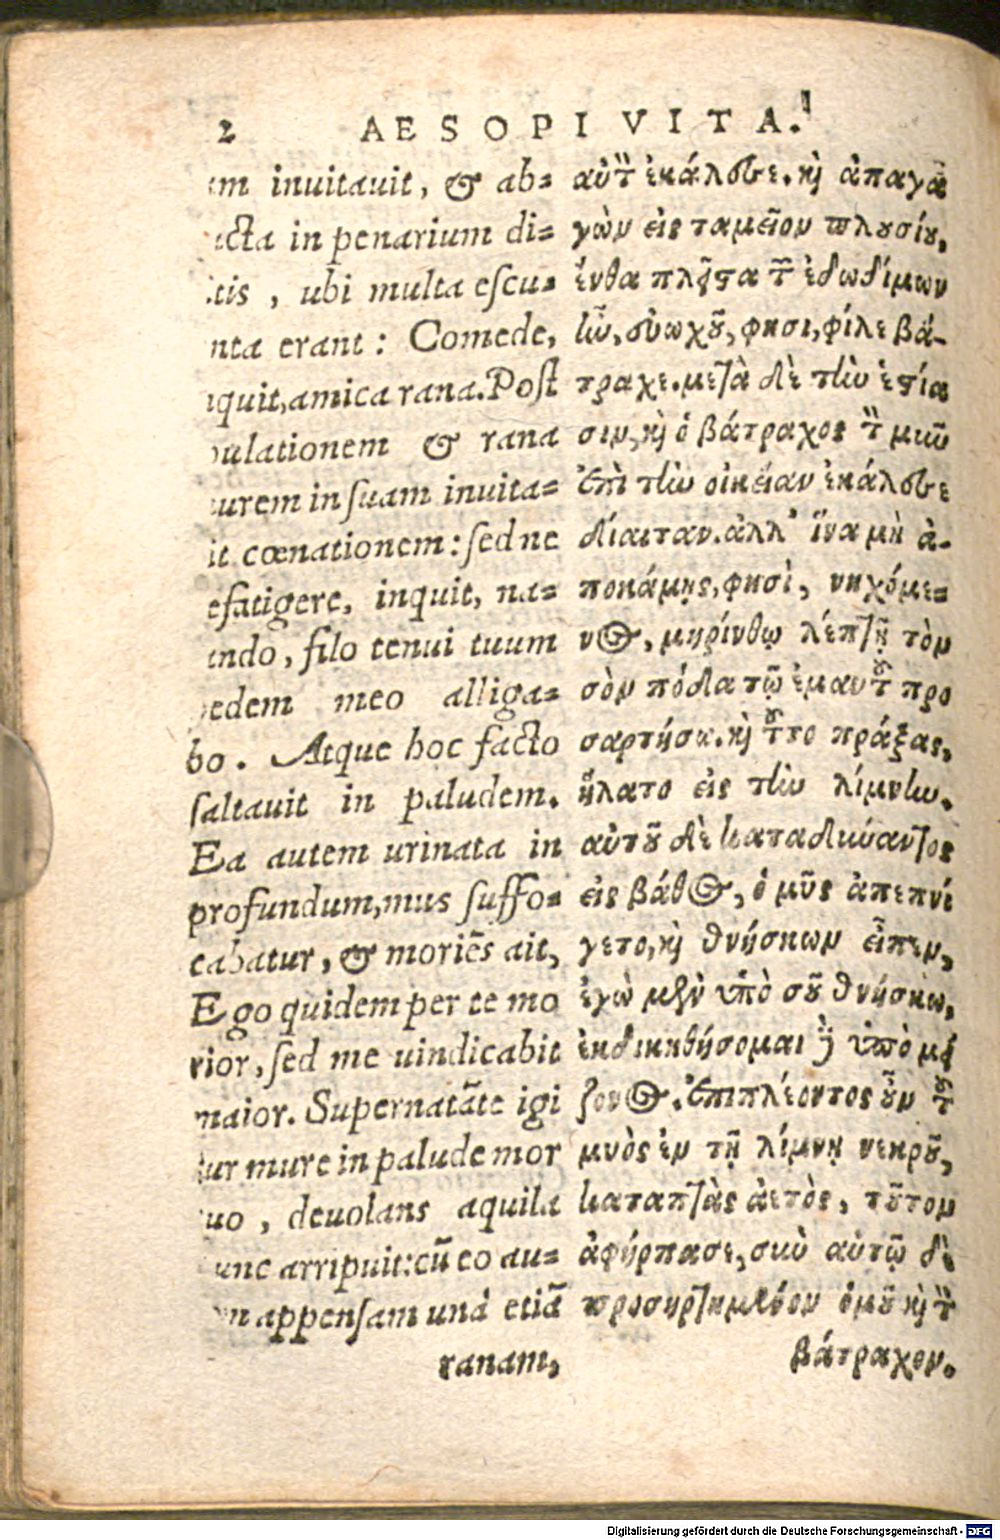 2 AESOPI VITA.
inuitauit, & ab-
in penarium di-
, ubi multa escu-
erant: Comede,
amica rana. Post
& rana
in suam inuita-
cœnationem: sed ne
efatigere, inquit, na-
, filo tenui tuum
meo alliga-
bo. Atque hoc facto
saltauit in paludem.
Ea autem urinata in
profundum, mus suffo-
cabatur, & moriēs ait,
Ego quidem per te mo
rior, sed me uindicabit
maior. Supernatāte igi
tur mure in palude mor
tuo, deuolans aquila
arripuit: cū eo au-
appensam unà etiā
ranam,
αὐτὸν ἐκάλεσε. καὶ ἀπαγα
γὼν εἰς ταμεῖον πλουσίου,
ἔνθα πλεῖστα τῶν ἐδωδίμων
ἦν, εὐωχοῦ, φησι, φίλε βά-
τραχε. μετὰ δὲ τὴν ἑστία
σιν, καὶ ὁ βάτραχος τὸν μῦν
ἐπὶ τὴν οἰκείαν ἐκάλεσε
δίαιταν. ἀλλ' ἵνα μὴ ἀ-
ποκάμῃς, φησὶ, νηχόμε-
νος, μηρίνθῳ λεπτῇ τὸν
σὸν πόδα τῷ ἐμαυτοῦ προ
σαρτήσω. καὶ τοῦτο πράξας,
ἥλατο εἰς τὴν λίμνην.
αὐτοῦ δὲ καταδύσαντος
εἰς βάθος, ὁ μῦς ἀπεπνί
γετο, καὶ θνήσκων εἶπεν,
ἐγὼ μὲν ὑπὸ σοῦ θνήσκω,
ἐκδικηθήσομαι δὲ ὑπὸ μεί
ζονος. ἐπιπλέοντος οὖν τοῦ
μυὸς ἐν τῇ λίμνῃ νεκροῦ,
καταπτὰς ἀετὸς, τοῦτον
ἀφήρπασε, σὺν αὐτῷ δὲ
προσηρτημένον ὁμοῦ καὶ τὸν
βάτραχον.
Digitalisierung gefördert durch die Deutsche Forschungsgemeinschaft - DFG